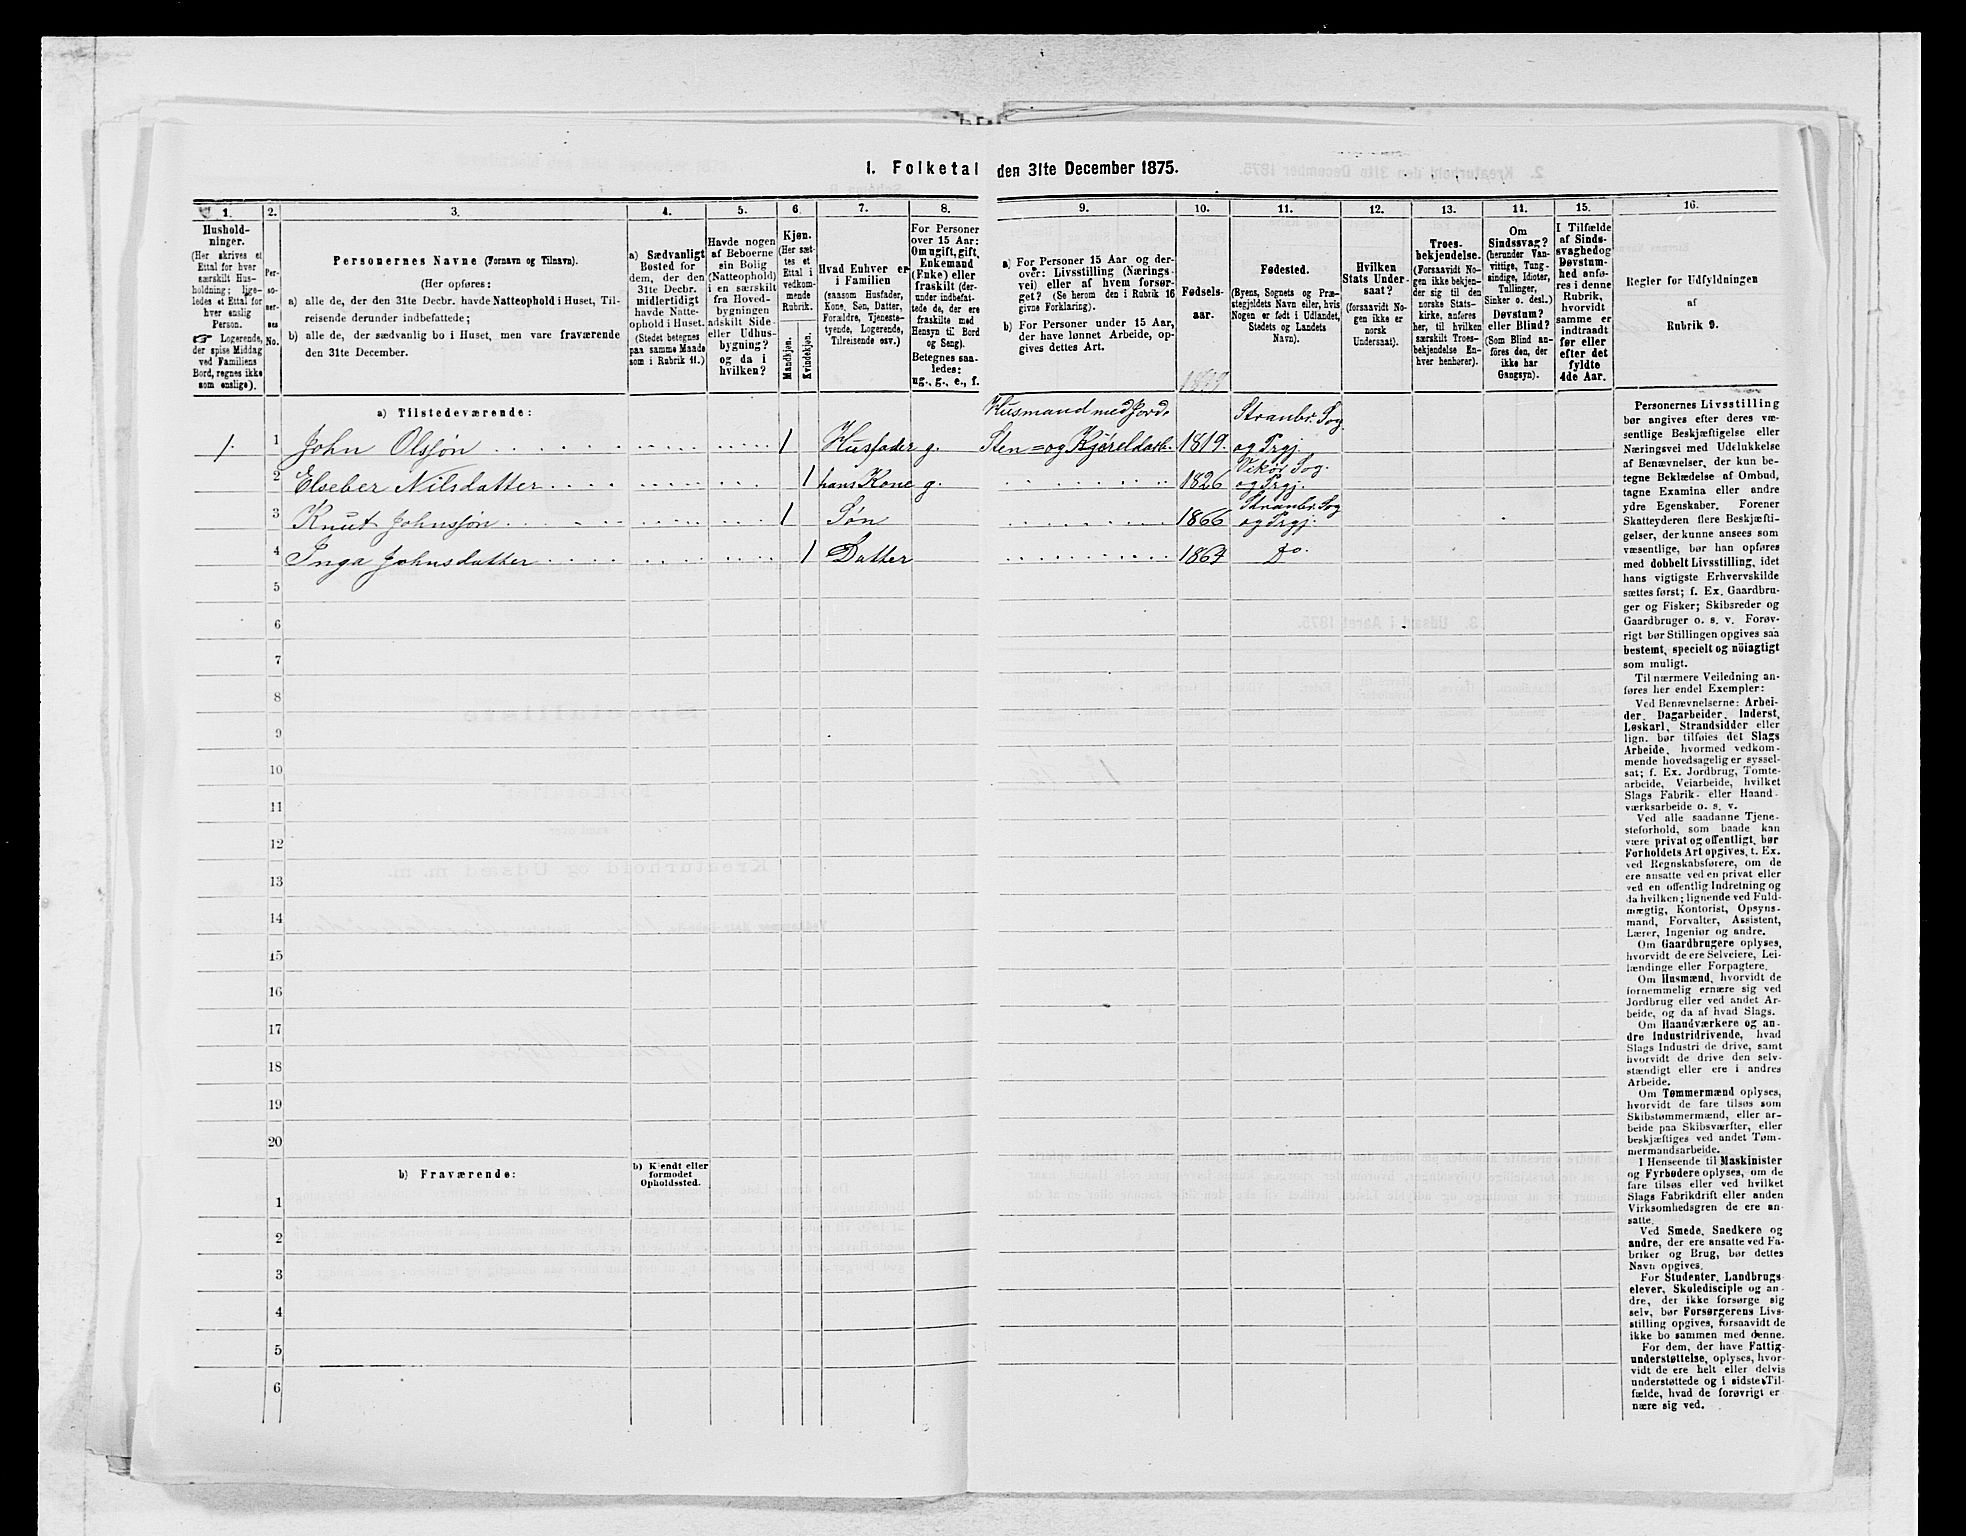 1. Folketal den 31te December 1875.
1. 2. 3. 4. 5. 6. 7. 8. 9. 10. 11. 12. 13. 14. 15. 16.
Hushold-
ninger.
(Her skrives et
Ettal for hver
særskilt Hus-
holdning; lige-
ledes et Ettal for
hver enslig
Person.
☞ Logerende,
der spise Middag
ved Familiens
Bord, regnes ikke
som enslige).
Per-
so-
ner-
nes
No.
Personernes Navne (Fornavn og Tilnavn).
(Her opføres:
a) alle de, der den 31te Decbr. havde Natteophold i Huset, Til-
reisende derunder indbefattede;
b) alle de, der sædvanlig bo i Huset, men vare fraværende
den 31te December.
a) Sædvanligt
Bosted for
dem, der den
31te Decbr.
midlertidigt
havde Natte-
ophold i Huset.
(Stedet betegnes
paa samme Maade
som i Rubrik 11.)
Havde nogen
af Beboerne
sin Bolig
(Natteophold)
i en særskilt
fra Hoved-
bygningen
adskilt Side-
eller Udhus-
bygning?
og da i
hvilken?
Kjøn.
(Her sæt-
tes et
Ettal i
vedkom-
mende
Rubrik.
Mandkjøn.
Kvindekjøn.
Hvad Enhver er
i Familien
(saasom Husfader,
Kone, Søn, Datter,
Forældre, Tjeneste-
tyende, Logerende,
Tilreisende osv.)
For Personer
over 15 Aar:
Om ugift, gift,
Enkemand
(Enke) eller
fraskilt (der-
under indbefat-
tede de, der ere
fraskilte med
Hensyn til Bord
og Seng).
Betegnes saa-
ledes:
ug., g., e., f.
a) For Personer 15 Aar og der-
over: Livsstilling (Nærings-
vei) eller af hvem forsør-
get? (Se herom den i Rubrik 16
givne Forklaring).
b) For Personer under 15 Aar,
der have lønnet Arbeide, op-
gives dettes Art.
Fødsels-
aar.
Fødested.
(Byens, Sognets og Præ-
stegjeldets Navn eller, hvis
Nogen er født i Udlandet,
Stedets og Landets
Navn).
Hvilken
Stats Under-
saat?
(forsaavidt No-
gen ikke er
norsk
Undersaat).
Troes-
bekjendelse.
(Forsaavidt No-
gen ikke bekjen-
der sig til den
norske Stats-
kirke, anføres
her, til hvilken
særskilt Troes-
bekjendelse En-
hver henhører).
Om
Sindssvag?
(herunder Van-
vittige, Tung-
sindige, Idioter,
Tullinger,
Sinker o. desl.)
Døvstum?
eller Blind?
(Som Blind an-
føres den, der
ikke har
Gangsyn).
I Tilfælde
af Sinds-
svaghed og
Døvstum-
hed anfø-
res i denne
Rubrik,
hvorvidt
samme er
indtraadt
før eller
efter det
fyldte
4de Aar.
Regler for Udfyldningen
af
Rubrik 9.
a) Tilstedeværende:
Husmand med Jord. Stranbr. Sog.
1. 1 John Olsføn 1 Husfader g. Sten= og 1819. og Prgj.
Vikør Sog.
2 Elseber Nilsdatter 1 hans Kone g. 1826 og Prgj.
Stranbr. Sog
3 Knut Johnsføn 1 Søn 1866 og Prgj.
4 Inga Johnsdatter 1 Datter 1864 Do.
5
6
7
8
9
10
11
12
13
14
15
16
17
18
19
20
b) Fraværende:
b) Kjendt eller
formodet
Opholdssted.
1
2
3
4
5
6
Personernes Livsstilling
bør angives efter deres væ-
sentlige Beskjæftigelse eller
Næringsvei med Udelukkelse
af Benævnelser, der kun be-
tegne Beklædelse af Ombud,
tagne Examina eller andre
ydre Egenskaber. Forener
Skatteyderen flere Beskjæfti-
gelser, der kunne ansees som
væsentlige, bør han opføres
med dobbelt Livsstilling, idet
hans vigtigste Erhvervskilde
sættes først; f. Ex. Gaardbru-
ger og Fisker; Skibsreder og
Gaardbruger o. s. v. Forøv-
rigt bør Stillingen opgives saa
bestemt, specielt og nöiagtigt
som muligt.
Til nærmere Veiledning an-
føres her endel Exempler:
Ved Benævnelserne: Arbei-
der, Dagarbeider, Inderst,
Løskarl, Strandsidder eller
lign. bør tilføies det Slags
Arbeide, hvormed vedkom-
mende hovedsagelig er syssel-
sat; f. Ex. Jordbrug, Tomte-
arbeide, Veiarbeide, hvilket
Slags Fabrik- eller Haand-
værksarbeide o. s. v.
Ved alle saadanne Tjene-
steforhold, som baade kan
være privat og offentligt, bør
Forholdets Art opgives, t. Ex.
ved Regnskabsførere, om de
ere ansatte ved en privat eller
ved en offentlig Indretning og
da hvilken; lignende ved Fuld-
mægtig, Kontorist, Opsyns-
mand, Forvalter, Assistent,
Lærer, Ingeniør og andre.
Om Gaardbrugere oplyses,
hvorvidt de ere Selveiere, Lei-
lændinge eller Forpagtere.
Om Husmænd, hvorvidt de
fornemmelig ernære sig ved
Jordbrug eller ved andet Ar-
beide, og da af hvad Slags.
Om Haandværkere og an-
dre Industridrivende, hvad
Slags Industri de drive, samt
hvorvidt de drive den selv-
stændigt eller ere i andres
Arbeide.
Om Tømmermænd oplyses,
hvorvidt de fare tilsøs som
Skibstømmermænd, eller ar-
beide paa Skibsværfter, eller
beskjæftiges ved andet Tøm-
mermandsarbeide.
I Henseende til Maskinister
og Fyrbødere oplyses, om de
fare tilsøs eller ved hvilket
Slags Fabrikdrift eller anden
Virksomhedsgren de ere an-
satte.
Ved Smede, Snedkere og
andre, der ere ansatte ved Fa-
briker og Brug, bør dettes
Navn opgives.
For Studenter, Landbrugs-
elever, Skoledisciple og an-
dre, der ikke forsørge sig
selv, bør Forsørgerens Livs-
stilling opgives, forsaavidt de
ikke bo sammen med denne.
For dem, der have Fattig-
understøttelse, oplyses, hvor-
vidt de ere helt eller delvis
understøttede og i sidste Til-
fælde, hvad de forøvrigt er-
nære sig ved.